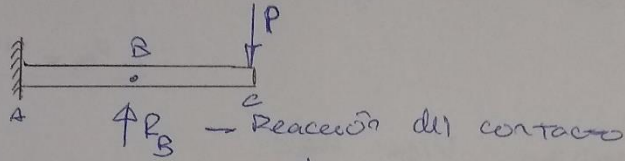 P
B
A
C
R_B — Reacción del contacto